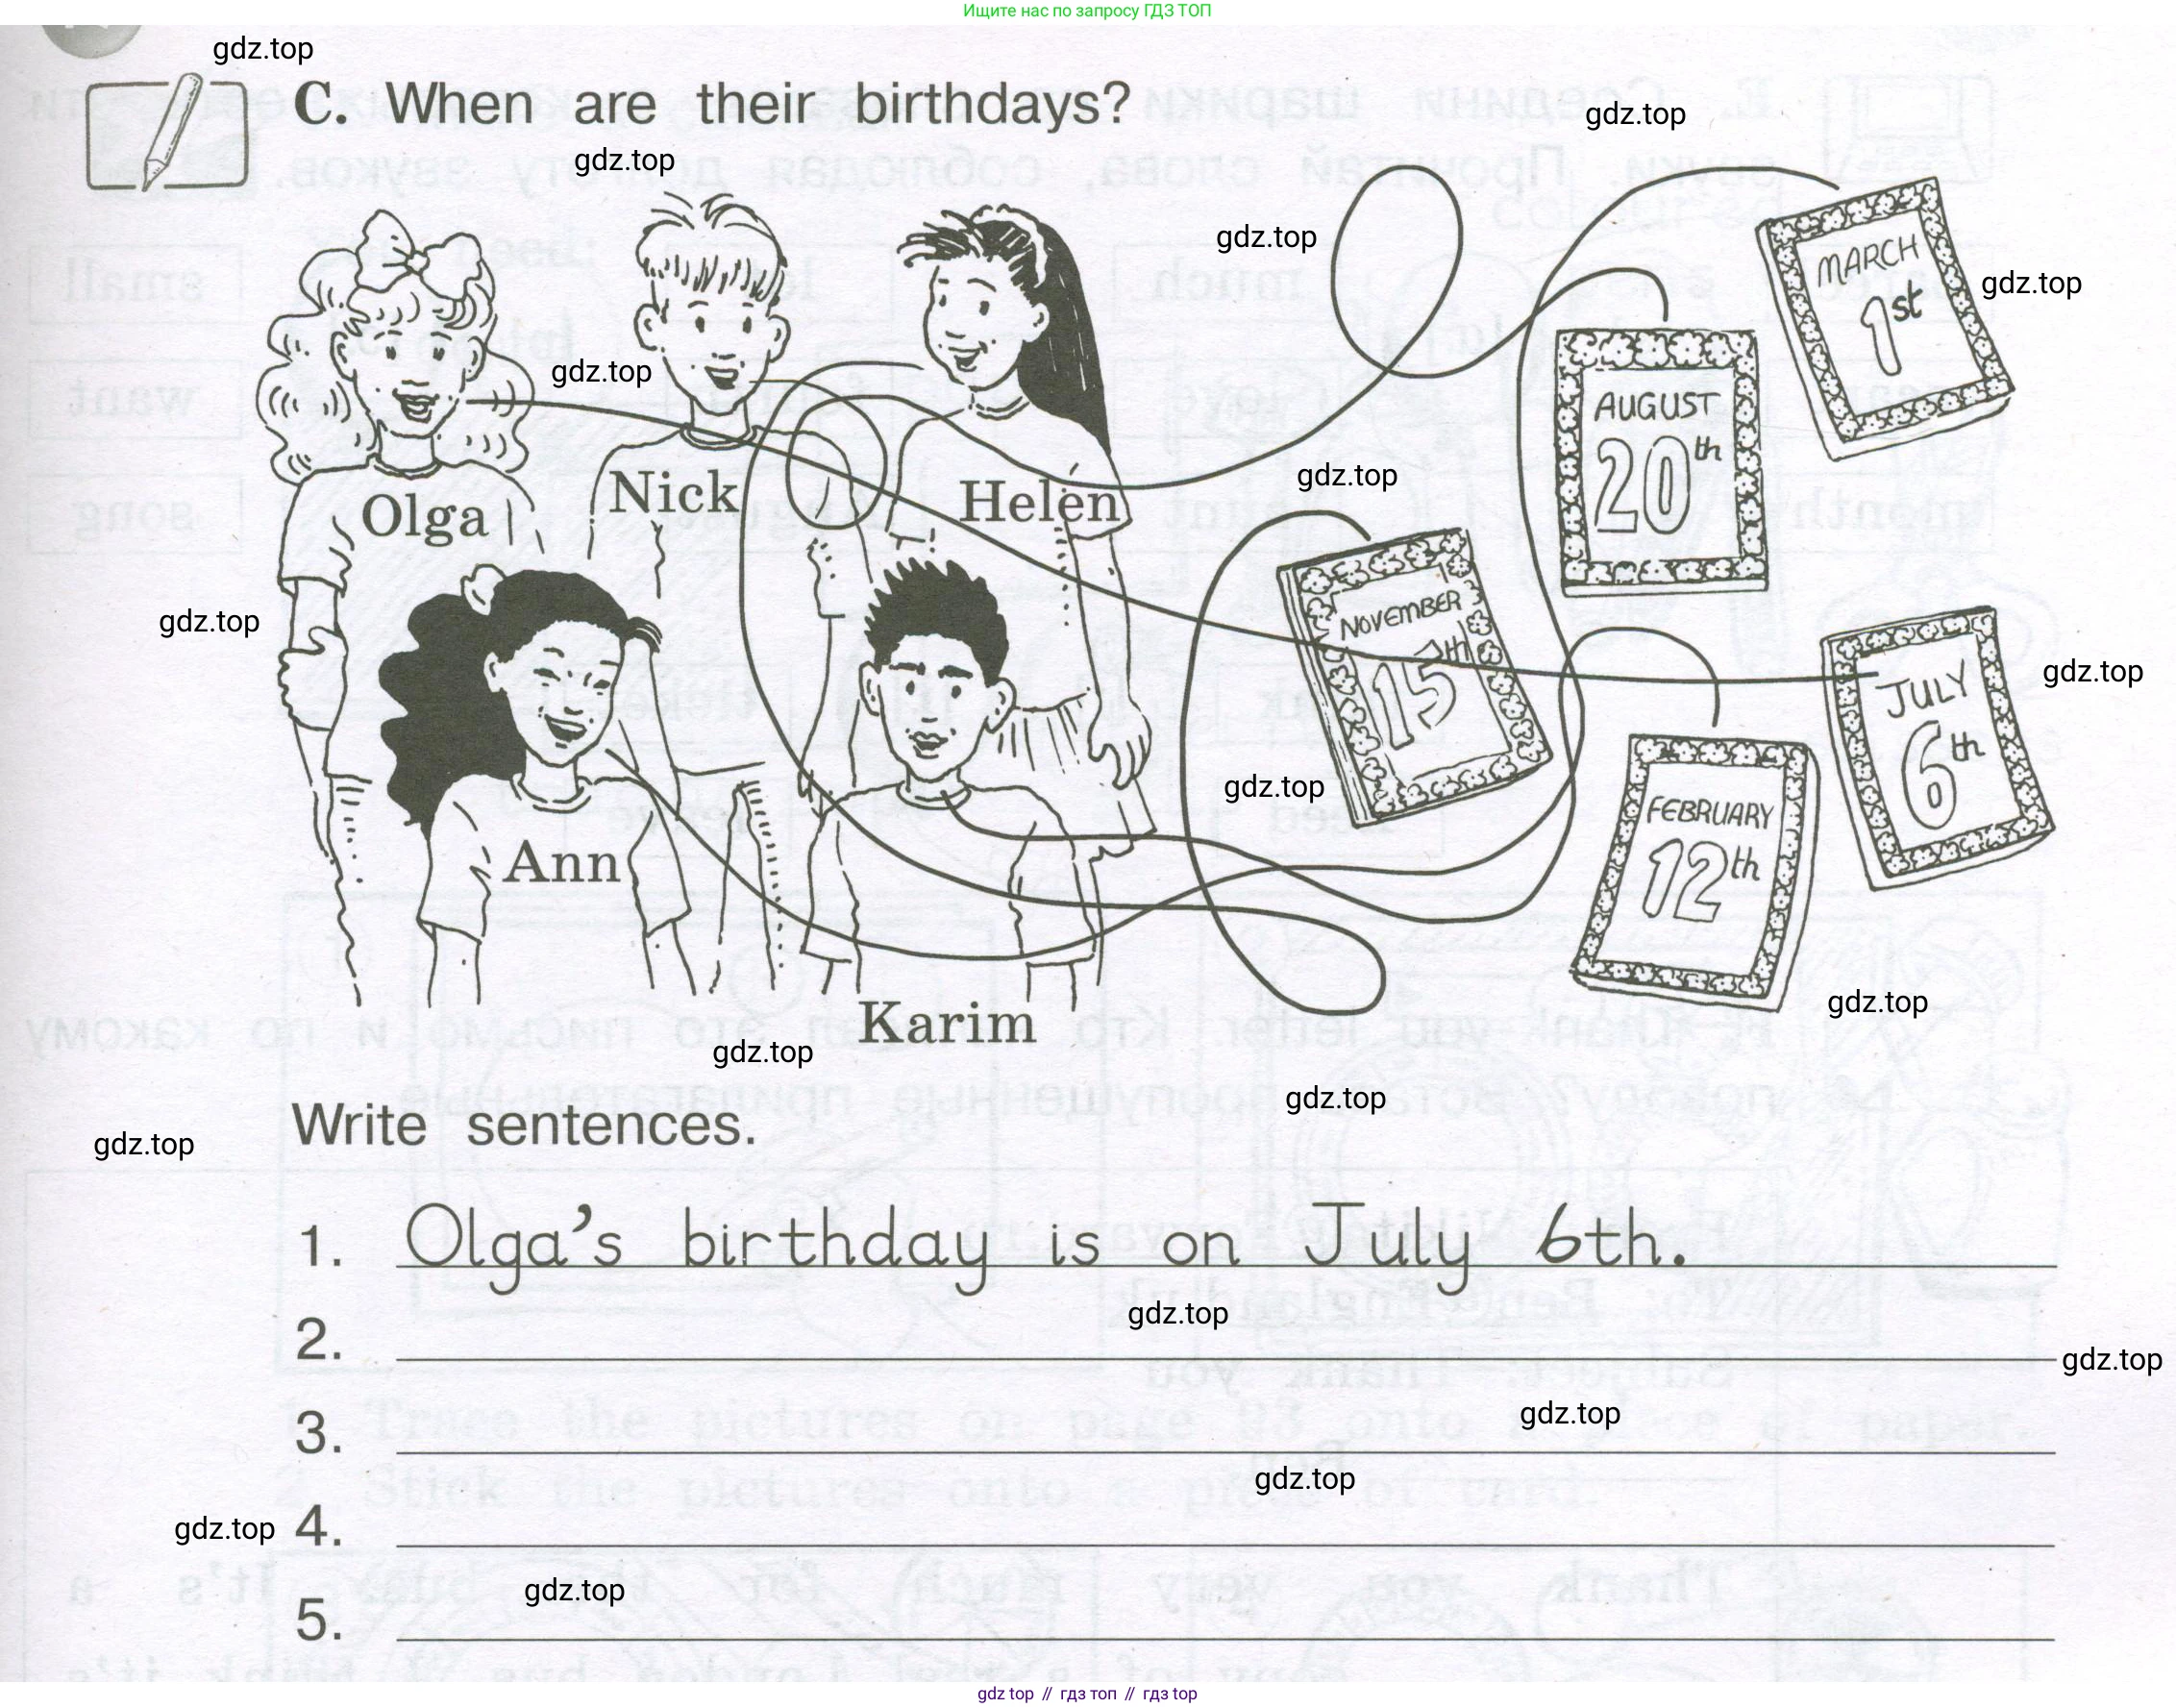 Ищите нас по запросу ГДЗ ТОП
gdz.top
C. When are their birthdays?
gdz.top
gdz.top
gdz.top
MARCH
1st
gdz.top
gdz.top
AUGUST
20th
Olga
Nick
Helen
gdz.top
NOVEMBER
15th
gdz.top
JULY
6th
gdz.top
gdz.top
FEBRUARY
12th
Ann
Karim
gdz.top
gdz.top
gdz.top
Write sentences.
gdz.top
1. Olga's birthday is on July 6th.
gdz.top
2.
gdz.top
3.
gdz.top
gdz.top
4.
gdz.top
5.
gdz.top
gdz top // гдз топ // гдз top